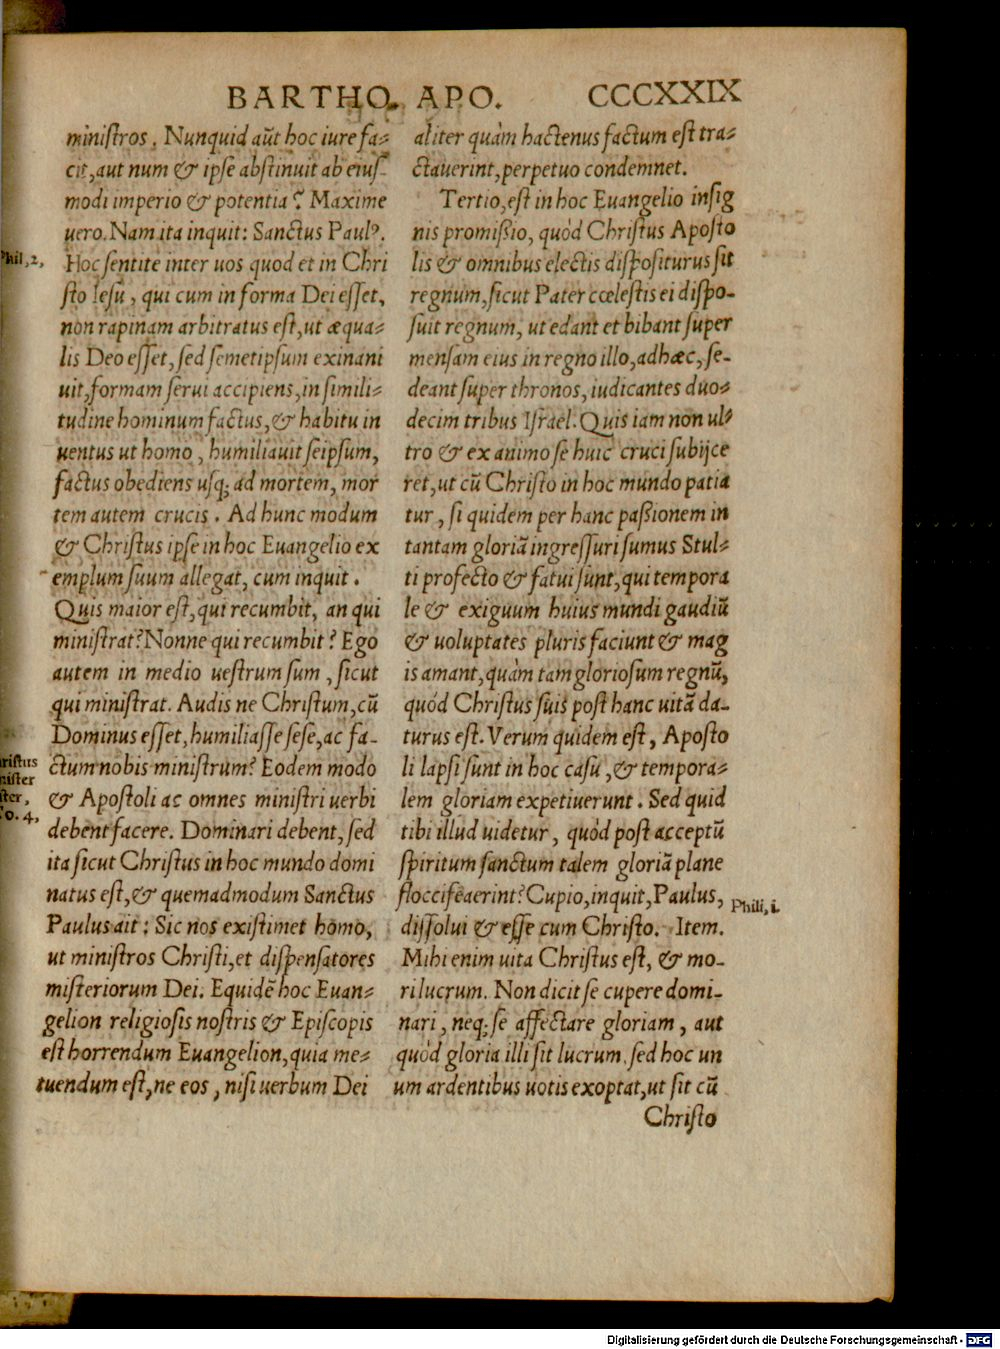 BARTHO. APO. CCCXXIX
ministros. Nunquid aūt hoc iure fa⸗
cit, aut num & ipse abstinuit ab eius⸗
modi imperio & potentia? Maxime
uero. Nam ita inquit: Sanctus Paulꝰ.
Phil, 2,
Hoc sentite inter uos quod et in Chri
sto Iesu, qui cum in forma Dei esset,
non rapinam arbitratus est, ut æqua⸗
lis Deo esset, sed semetipsum exinani
uit, formam serui accipiens, in simili⸗
tudine hominum factus, & habitu in
uentus ut homo, humiliauit seipsum,
factus obediens usq; ad mortem, mor
tem autem crucis. Ad hunc modum
& Christus ipse in hoc Euangelio ex
emplum suum allegat, cum inquit.
Quis maior est, qui recumbit, an qui
ministrat? Nonne qui recumbit? Ego
autem in medio uestrum sum, sicut
qui ministrat. Audis ne Christum, cū
Dominus esset, humiliasse sese, ac fa-
ristus
nister
ster,
o. 4,
ctum nobis ministrum? Eodem modo
& Apostoli ac omnes ministri uerbi
debent facere. Dominari debent, sed
ita sicut Christus in hoc mundo domi
natus est, & quemadmodum Sanctus
Paulus ait: Sic nos existimet homo,
ut ministros Christi, et dispensatores
misteriorum Dei. Equidē hoc Euan⸗
gelion religiosis nostris & Episcopis
est horrendum Euangelion, quia me⸗
tuendum est, ne eos, nisi uerbum Dei
aliter quàm hactenus factum est tra⸗
ctauerint, perpetuo condemnet.
Tertio, est in hoc Euangelio insig
nis promißio, quòd Christus Aposto
lis & omnibus electis dispositurus sit
regnum, sicut Pater cœlestis ei dispo-
suit regnum, ut edant et bibant super
mensam eius in regno illo, adhæc, se-
deant super thronos, iudicantes duo⸗
decim tribus Israel. Quis iam non ul⸗
tro & ex animo se huic cruci subijce
ret, ut cū Christo in hoc mundo patia
tur, si quidem per hanc paßionem in
tantam gloriā ingressuri sumus Stul⸗
ti profecto & fatui sunt, qui tempora
le & exiguum huius mundi gaudiū
& uoluptates pluris faciunt & mag
is amant, quàm tam gloriosum regnū,
quód Christus suis post hanc uitā da-
turus est. Verum quidem est, Aposto
li lapsi sunt in hoc casu, & tempora⸗
lem gloriam expetiuerunt. Sed quid
tibi illud uidetur, quòd post acceptū
spiritum sanctum talem gloriā plane
floccifeaerint? Cupio, inquit, Paulus,
Phili, i.
dissolui & esse cum Christo. Item.
Mihi enim uita Christus est, & mo-
ri lucrum. Non dicit se cupere domi-
nari, neq; se affectare gloriam, aut
quòd gloria illi sit lucrum, sed hoc un
um ardentibus uotis exoptat, ut sit cū
Christo
Digitalisierung gefördert durch die Deutsche Forschungsgemeinschaft - DFG